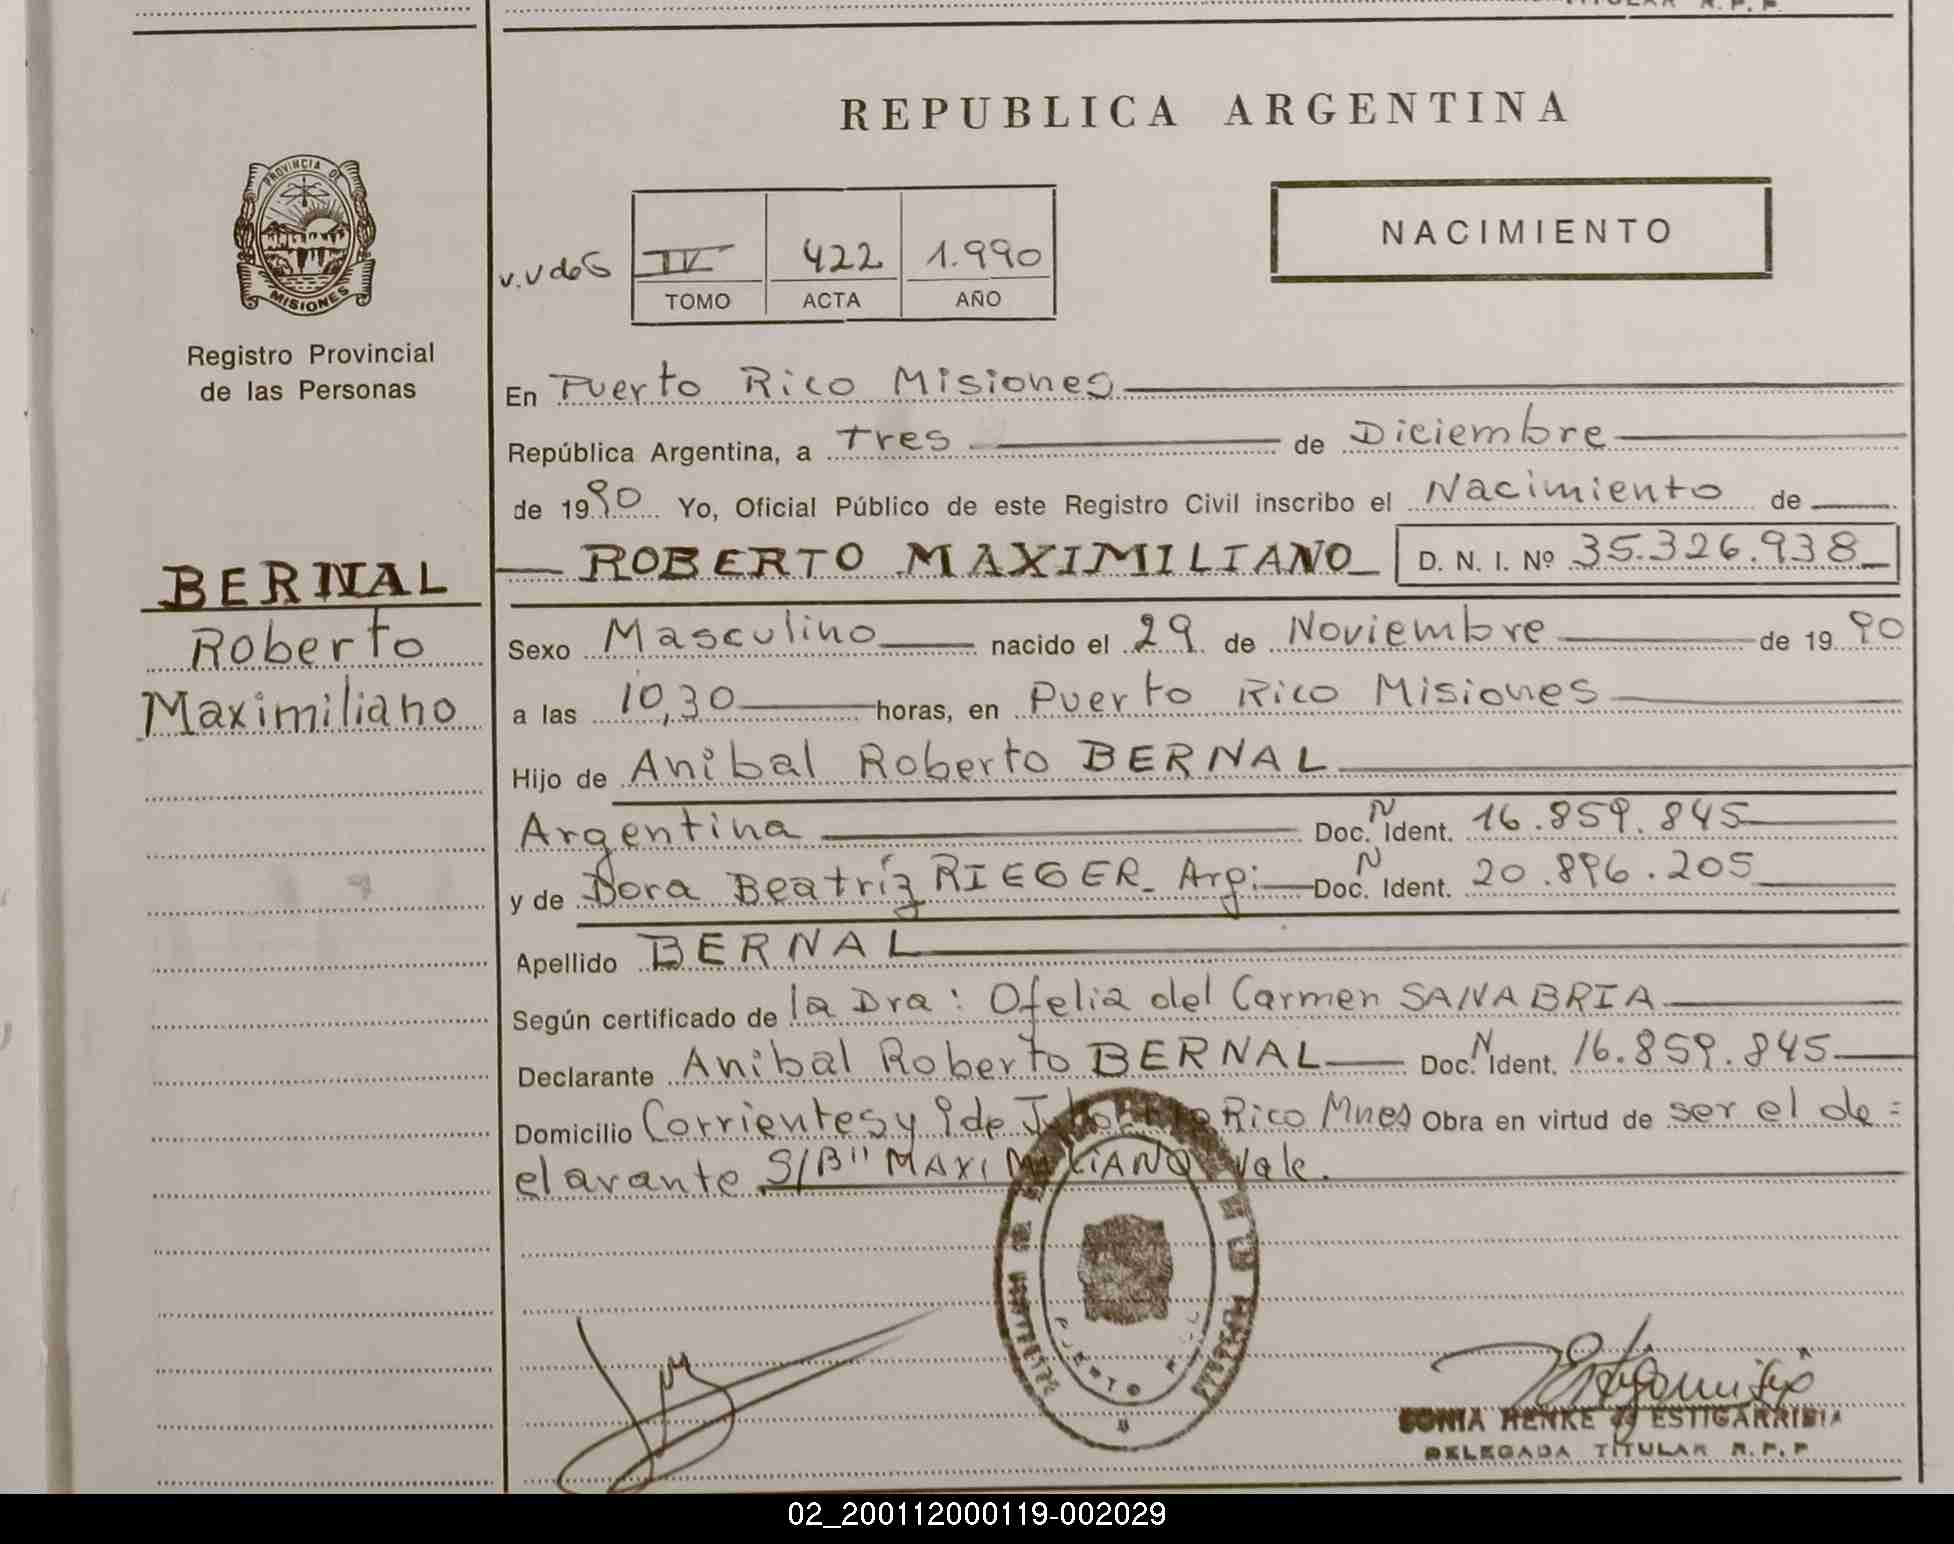 TITULAR R. P. P.
REPUBLICA ARGENTINA
PROVINCIA DE
MISIONES
Registro Provincial
de las Personas
IV 422 1.990
TOMO ACTA AÑO
NACIMIENTO
En Puerto Rico Misiones
República Argentina, a Tres de Diciembre
de 1990 Yo, Oficial Público de este Registro Civil inscribo el Nacimiento de
ROBERTO MAXIMILIANO D. N. I. Nº 35.326.938
BERNAL
Roberto
Maximiliano
Sexo Masculino nacido el 29 de Noviembre de 1990
a las 10,30 horas, en Puerto Rico Misiones
Hijo de Anibal Roberto BERNAL
Argentina Doc. N Ident. 16.859.845
y de Dora Beatríz RIEGER_ Arg: Doc. N Ident. 20.896.205
Apellido BERNAL
Según certificado de la Dra: Ofelia del Carmen SANABRIA
Declarante Anibal Roberto BERNAL Doc. N Ident. 16.859.845
Domicilio Corrientes y 9 de Julio Rico Mnes Obra en virtud de ser el de=
clarante S/B" MAXIMILIANO Vale.
PUERTO RICO
SONIA HENKE de ESTIGARRIBIA
DELEGADA TITULAR R. P. P
02_200112000119-002029